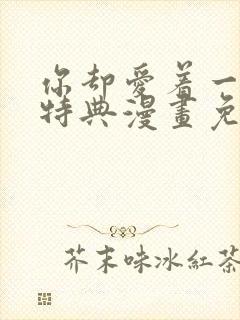 你却愛着一
特典漫畫免
芥末味冰紅茶